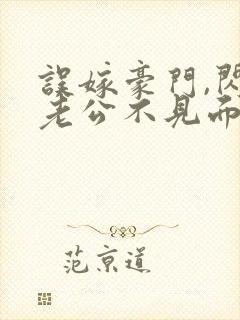 誤嫁豪門,閃
老公不見而
范京道